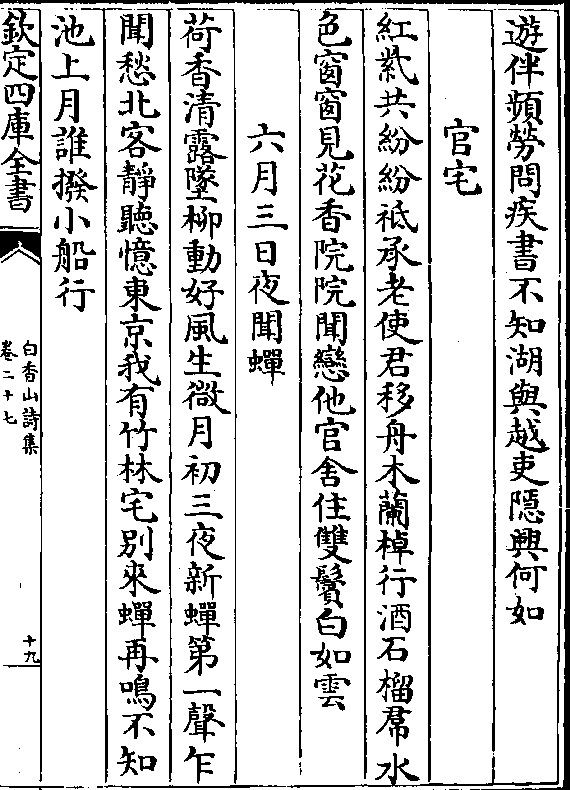 遊伴頻勞問疾書不知湖與越吏隠興何如
官宅
紅紫共紛紛祗承老使君移舟木蘭棹行酒石榴帬水
色窗窗見花香院院聞戀他官舍住雙鬢白如雲
六月三日夜聞蟬
荷香清露墜柳動好風生微月初三夜新蟬第一聲乍
聞愁北客靜聽憶東京我有竹林宅別來蟬再鳴不知
池上月誰撥小船行
欽定四庫全書
白香山詩集
卷二十七
十九